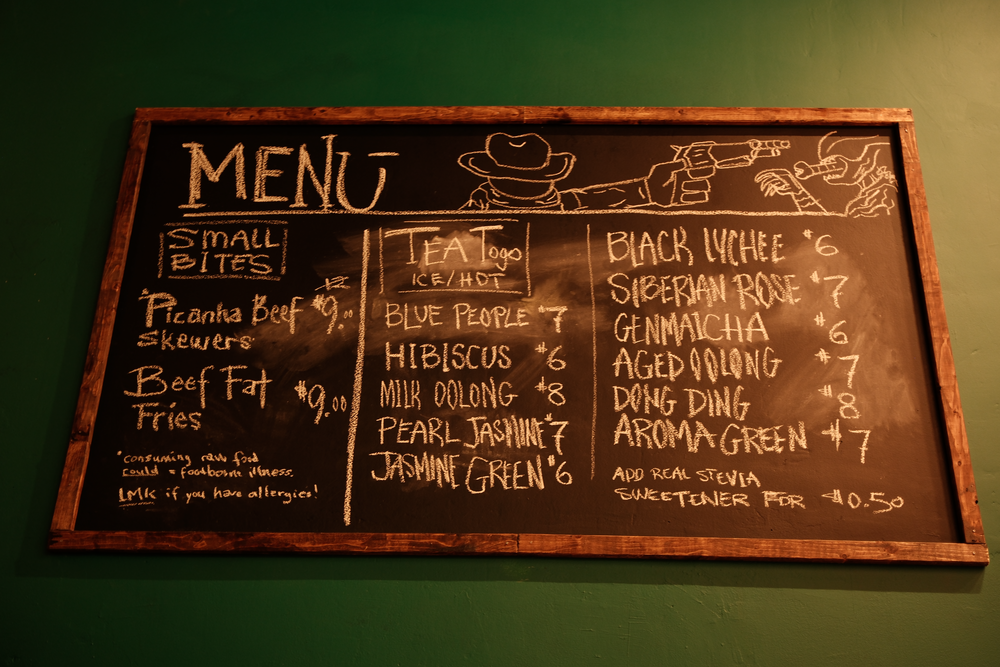 MENU
SMALL
BITES
12
*Picanha Beef $9.00
Skewers
Beef Fat
Fries $9.00
*consuming raw food
could = foodborn illness.
LMK if you have allergies!
TEA TOgo
ICE/HOT
BLUE PEOPLE $7
HIBISCUS $6
MILK OOLONG $8
PEARL JASMINE $7
JASMINE GREEN $6
BLACK LYCHEE $6
SIBERIAN ROSE $7
GENMAICHA $6
AGED OOLONG $7
DONG DING $8
AROMA GREEN $7
ADD REAL STEVIA
SWEETENER FOR $0.50